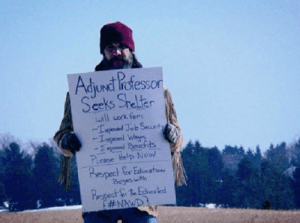 Adjunct Professor
Seeks Shelter
will work for:
- Improved Job Security
- Improved Wages
- Improved Benefits
Please Help Now!
Respect for Education
Begins with
Respect for the Educated
#NAWD